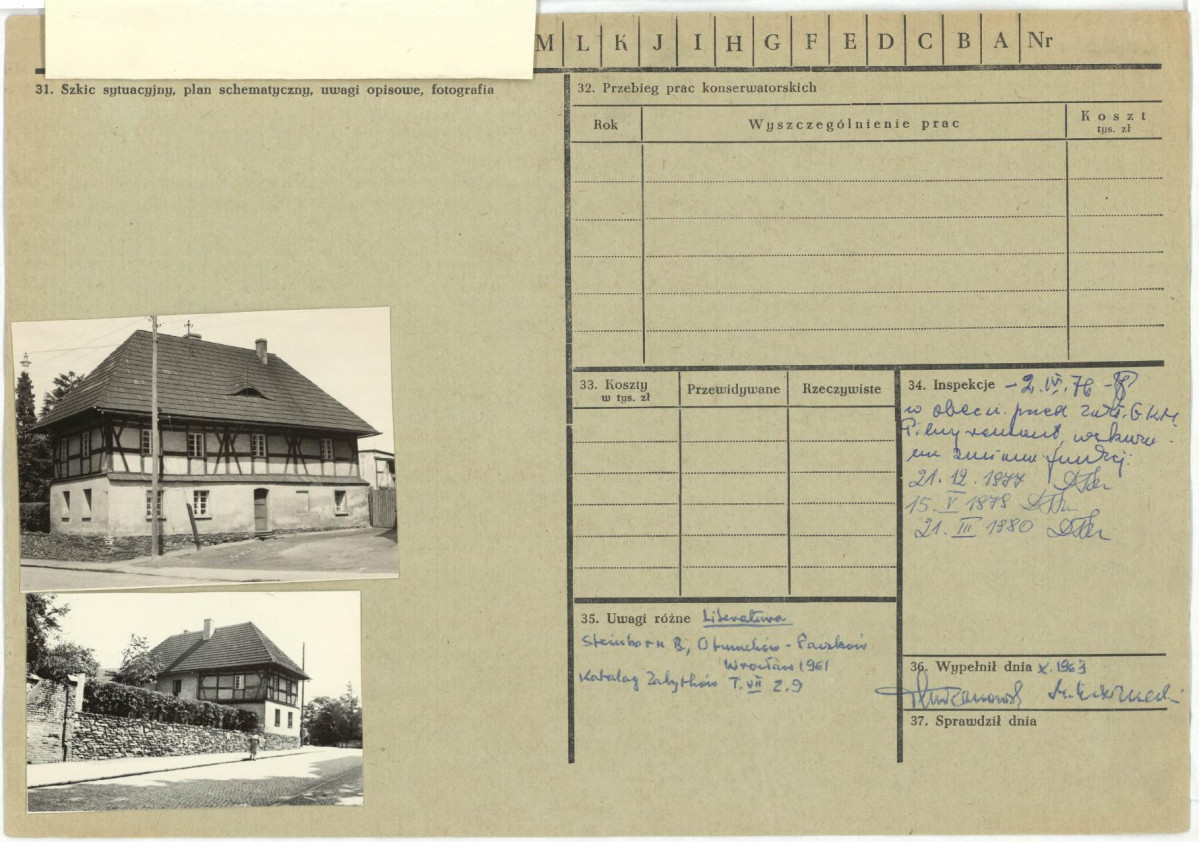 M L K J I H G F E D C B A Nr
31. Szkic sytuacyjny, plan schematyczny, uwagi opisowe, fotografia
32. Przebieg prac konserwatorskich
Rok
Wyszczególnienie prac
Koszt
tys. zł
33. Koszty
w tys. zł
Przewidywane
Rzeczywiste
34. Inspekcje - 2.IV.76 -
w obecn. przed
Pilny remont,
zmiana funkcji.
21. 12. 1977
15. V 1979
21. III 1980
35. Uwagi różne Literatura
Steinborn B, Otmuchów - Paczków
Wrocław 1961
Katalog Zabytków T. VII Z. 9
36. Wypełnił dnia X. 1963
37. Sprawdził dnia